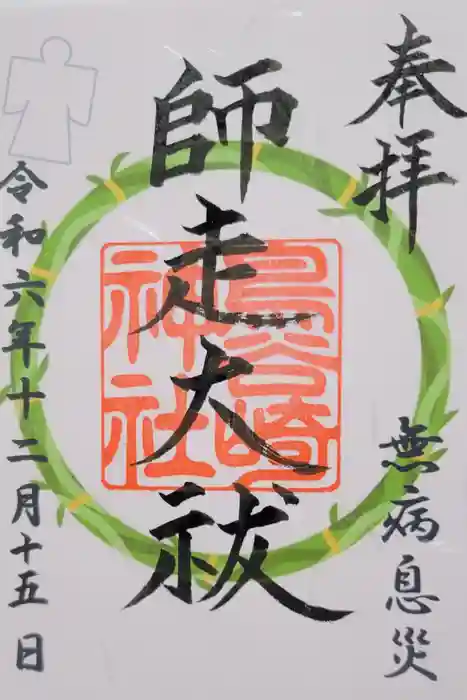 奉拝
無病息災
師走大祓
鳥谷崎
神社
令和六年十二月十五日